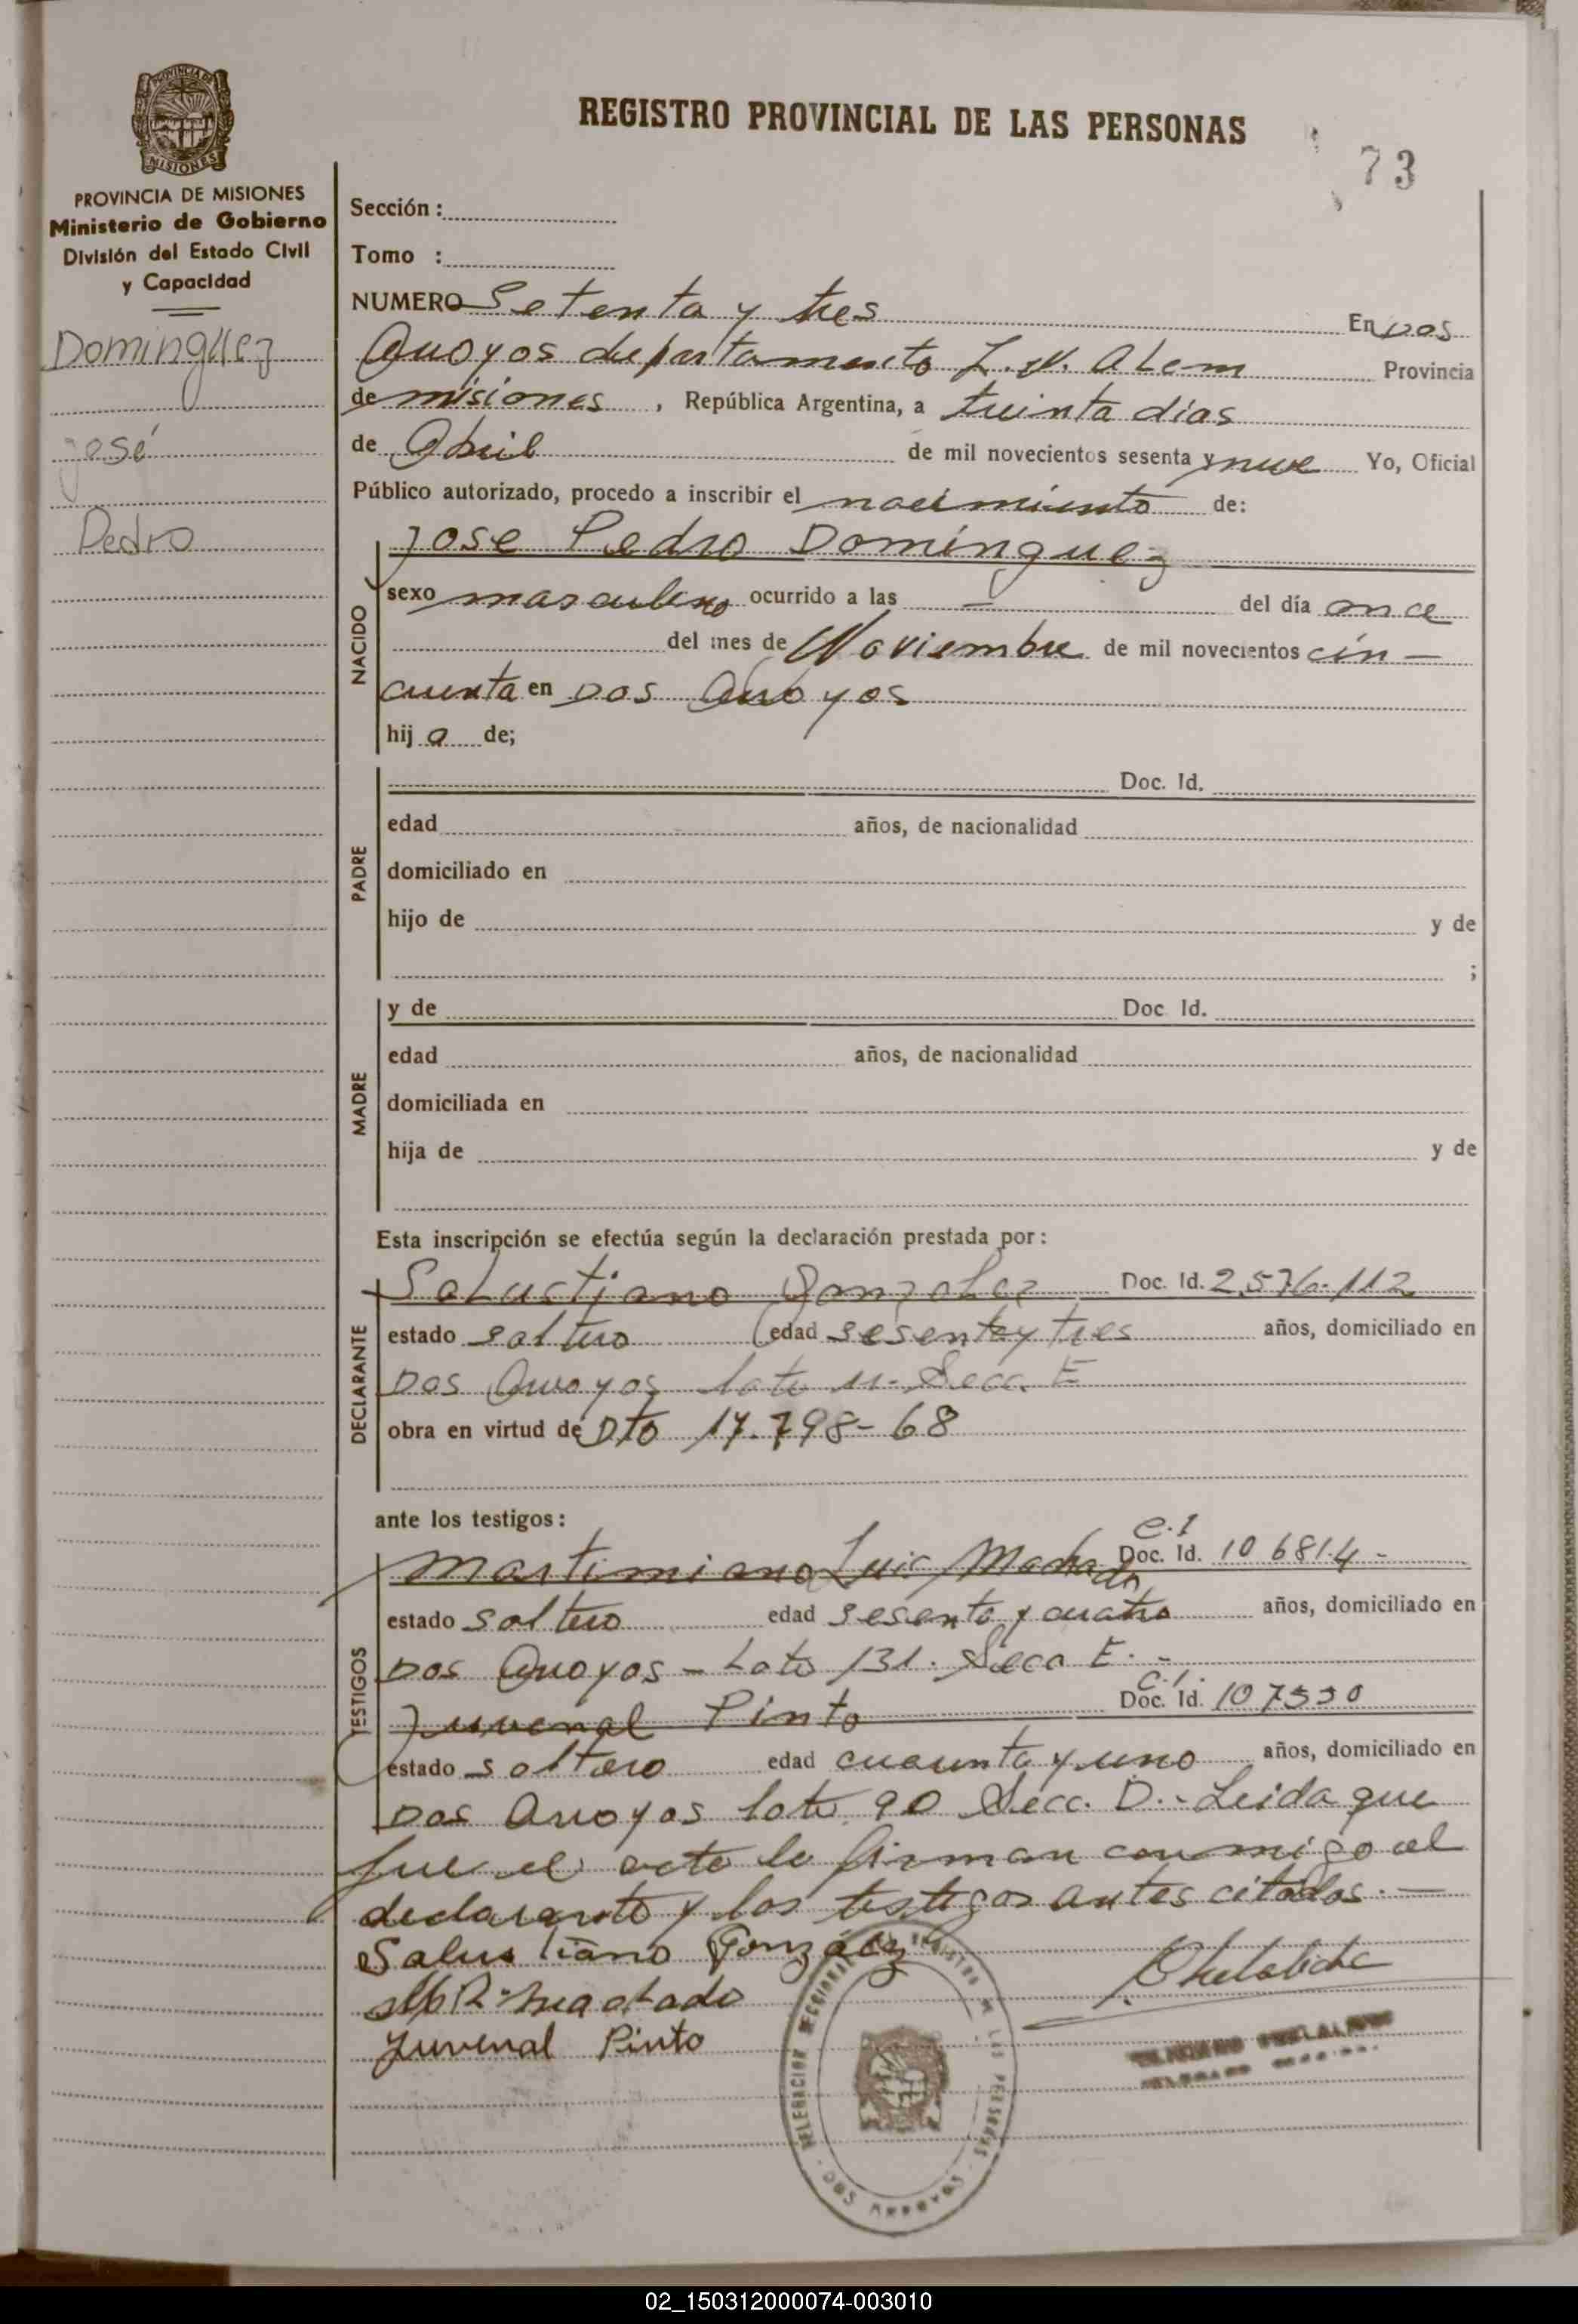 PROVINCIA DE MISIONES
REGISTRO PROVINCIAL DE LAS PERSONAS
73
PROVINCIA DE MISIONES
Ministerio de Gobierno
División del Estado Civil
y Capacidad
Dominguez
José
Pedro
Sección :
Tomo :
NUMERO Setenta y tres En Dos
Arroyos departamento L. N. Alem Provincia
de misiones , República Argentina, a treinta días
de Abril de mil novecientos sesenta y nueve Yo, Oficial
Público autorizado, procedo a inscribir el nacimiento de:
NACIDO
Jose Pedro Dominguez
sexo masculino ocurrido a las — del día once
del mes de Noviembre de mil novecientos cin—
cuenta en Dos Arroyos
hij o de;
PADRE
Doc. Id.
edad años, de nacionalidad
domiciliado en
hijo de y de
;
MADRE
y de Doc Id.
edad años, de nacionalidad
domiciliada en
hija de y de
Esta inscripción se efectúa según la declaración prestada por :
DECLARANTE
Salustiano Gonzalez Doc. Id. 2.576.112
estado soltero edad sesenta y tres años, domiciliado en
Dos Arroyos lote 11. Secc. E
obra en virtud de Dto 17.798-68
ante los testigos :
TESTIGOS
c.I
Martimiano Luis Machado Doc. Id. 106814 -
estado soltero edad sesenta y cuatro años, domiciliado en
Dos Arroyos - Lote 131. Secc E. -
C.I.
Juvenal Pinto Doc. Id. 107530
estado soltero edad cuarenta y uno años, domiciliado en
Dos Arroyos lote 90 Secc. D.- Leida que
fue el acta la firman conmigo el
declarante y los testigos antes citados. —
Salustiano Gonzalez
Machado
Juvenal Pinto
DELEGACION SECCIONAL REGISTRO DE LAS PERSONAS
DOS ARROYOS
02_150312000074-003010